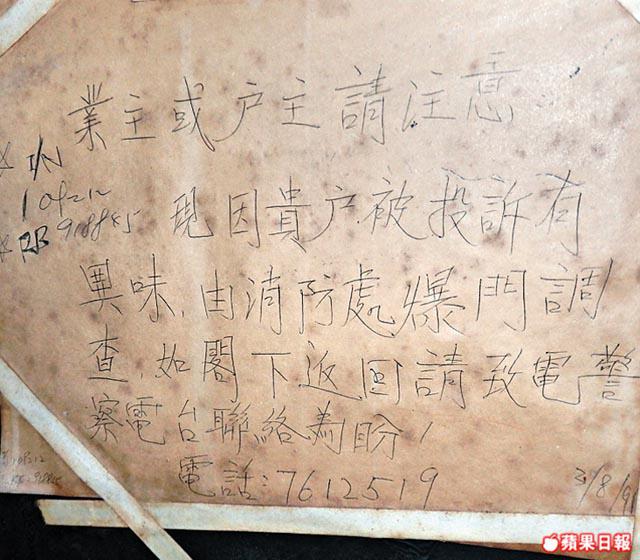 業主或户主請注意
* I/N
10212
* RB 918845
現因貴户被投訴有
異味,由消防處爆門調
查,如閣下返回請致電警
察電台聯絡為盼!
電話:7612519
31/8/9
蘋果日報